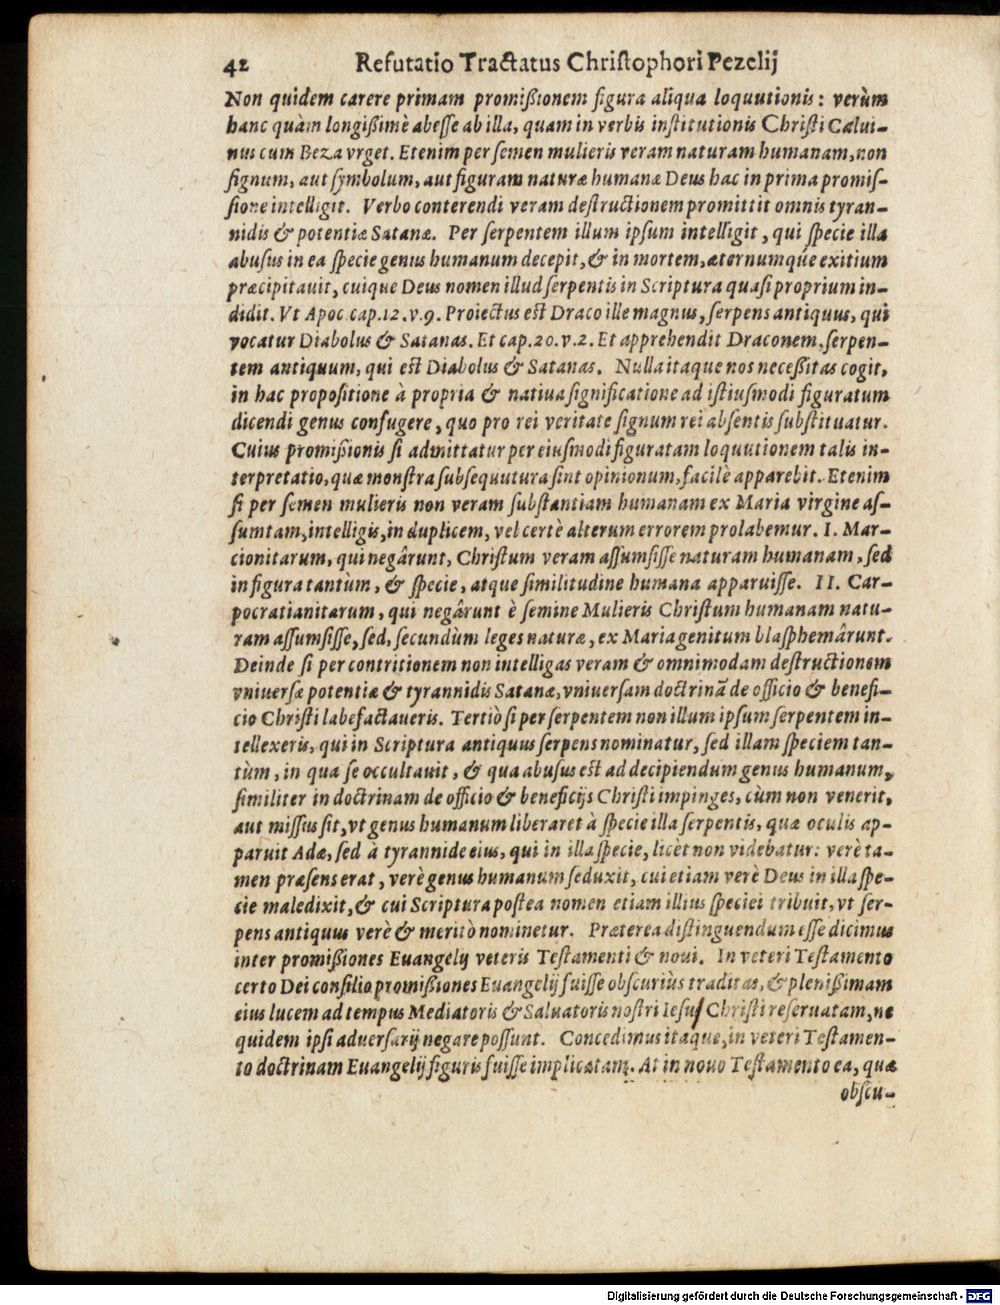 42 Refutatio Tractatus Christophori Pezelij
Non quidem carere primam promißionem figura aliqua loquutionis: verùm
hanc quàm longißimè abesse ab illa, quam in verbis institutionis Christi Calui-
nus cum Beza vrget. Etenim per semen mulieris veram naturam humanam, non
signum, aut symbolum, aut figuram naturæ humanæ Deus hac in prima promis-
sione intelligit. Verbo conterendi veram destructionem promittit omnis tyran-
nidis & potentiæ Satanæ. Per serpentem illum ipsum intelligit, qui specie illa
abusus in ea specie genus humanum decepit, & in mortem, æternumque exitium
præcipitauit, cuique Deus nomen illud serpentis in Scriptura quasi proprium in-
didit. Vt Apoc. cap. 12. v. 9. Proiectus est Draco ille magnus, serpens antiquus, qui
vocatur Diabolus & Satanas. Et cap. 20. v. 2. Et apprehendit Draconem, serpen-
tem antiquum, qui est Diabolus & Satanas. Nulla itaque nos neceßitas cogit,
in hac propositione à propria & natiua significatione ad istiusmodi figuratum
dicendi genus confugere, quo pro rei veritate signum rei absentis substituatur.
Cuius promißionis si admittatur per eiusmodi figuratam loquutionem talis in-
terpretatio, quæ monstra subsequutura sint opinionum, facilè apparebit. Etenim
si per semen mulieris non veram substantiam humanam ex Maria virgine as-
sumtam, intelligis, in duplicem, vel certè alterum errorem prolabemur. I. Mar-
cionitarum, qui negârunt, Christum veram assumsisse naturam humanam, sed
in figura tantum, & specie, atque similitudine humana apparuisse. II. Car-
pocratianitarum, qui negârunt è semine Mulieris Christum humanam natu-
ram assumsisse, sed, secundùm leges naturæ, ex Maria genitum blasphemârunt.
Deinde si per contritionem non intelligas veram & omnimodam destructionem
vniuersæ potentiæ & tyrannidis Satanæ, vniuersam doctrinã de officio & benefi-
cio Christi labefactaueris. Tertiò si per serpentem non illum ipsum serpentem in-
tellexeris, qui in Scriptura antiquus serpens nominatur, sed illam speciem tan-
tùm, in qua se occultauit, & qua abusus est ad decipiendum genus humanum,
similiter in doctrinam de officio & beneficijs Christi impinges, cùm non venerit,
aut missus sit, vt genus humanum liberaret à specie illa serpentis, quæ oculis ap-
paruit Adæ, sed à tyrannide eius, qui in illa specie, licèt non videbatur: verè ta-
men præsens erat, verè genus humanum seduxit, cui etiam verè Deus in illa spe-
cie maledixit, & cui Scriptura postea nomen etiam illius speciei tribuit, vt ser-
pens antiquus verè & meritò nominetur. Præterea distinguendum esse dicimus
inter promißiones Euangelij veteris Testamenti & noui. In veteri Testamento
certo Dei consilio promißiones Euangelij fuisse obscuriùs traditas, & plenißimam
eius lucem ad tempus Mediatoris & Saluatoris nostri Iesu Christi reseruatam, ne
quidem ipsi aduersarij negare possunt. Concedimus itaque, in veteri Testamen-
to doctrinam Euangelij figuris fuisse implicatam. At in nouo Testamento ea, quæ
obscu-
Digitalisierung gefördert durch die Deutsche Forschungsgemeinschaft - DFG